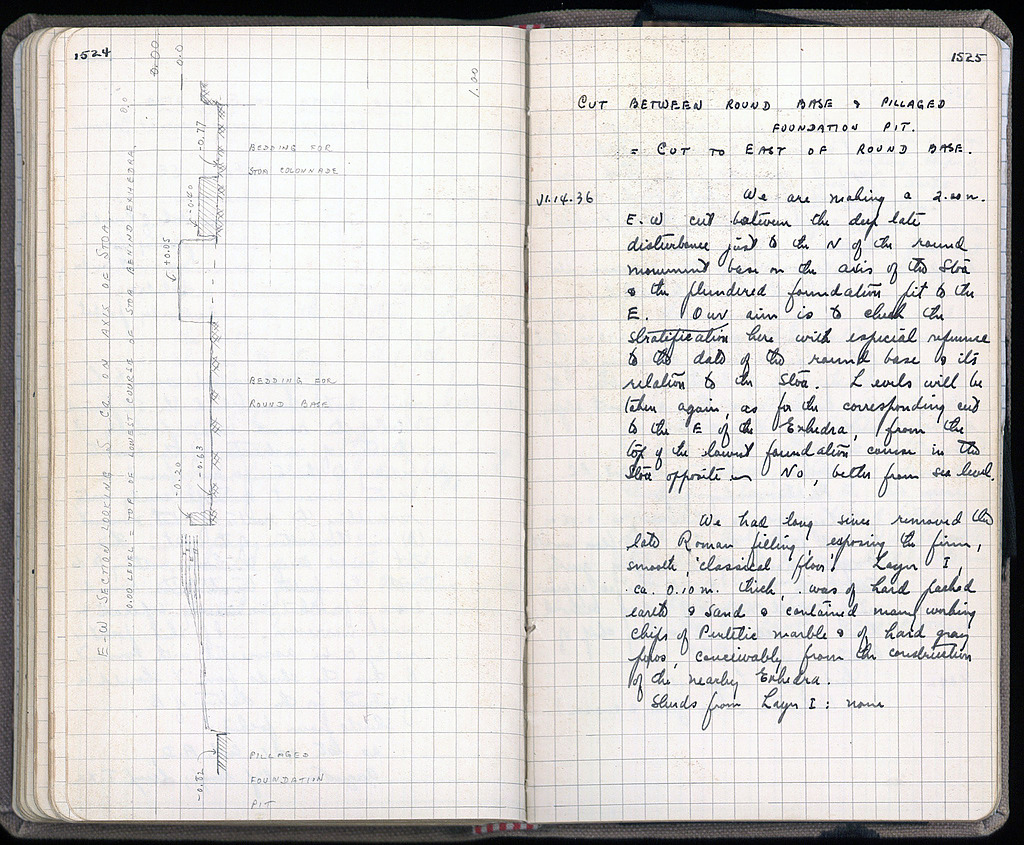 1524
0.00
0.0
1.00
0.0
-0.77
BEDDING FOR
STOA COLONNADE
-0.40
+0.05
E-W SECTION LOOKING S. CA ON AXIS OF STOA
0.00 LEVEL = TOP OF LOWEST COURSE OF STOA BEHIND EXHEDRA.
BEDDING FOR
ROUND BASE
-0.63
-0.20
-0.82
PILLAGED
FOUNDATION
PIT
1525
CUT BETWEEN ROUND BASE & PILLAGED
FOUNDATION PIT.
= CUT TO EAST OF ROUND BASE.
VI.14.36 We are making a 2.00 m.
E-W cut between the deep late
disturbance just to the N of the round
monument base on the axis of the Stoa
& the plundered foundation pit to the
E. Our aim is to check the
stratification here with especial reference
to the date of the round base & its
relation to the Stoa. Levels will be
taken again, as for the corresponding cut
to the E of the Exhedra, from the
top of the lowest foundation course in the
Stoa opposite No, better from sea level.
We had long since removed the
late Roman filling, exposing the firm,
smooth, classical floor. Layer I,
ca. 0.10 m. thick, was of hard packed
earth & sand & contained many working
chips of Pentelic marble & of hard gray
poros, conceivably from the construction
of the nearby Exhedra.
Sherds from Layer I: none